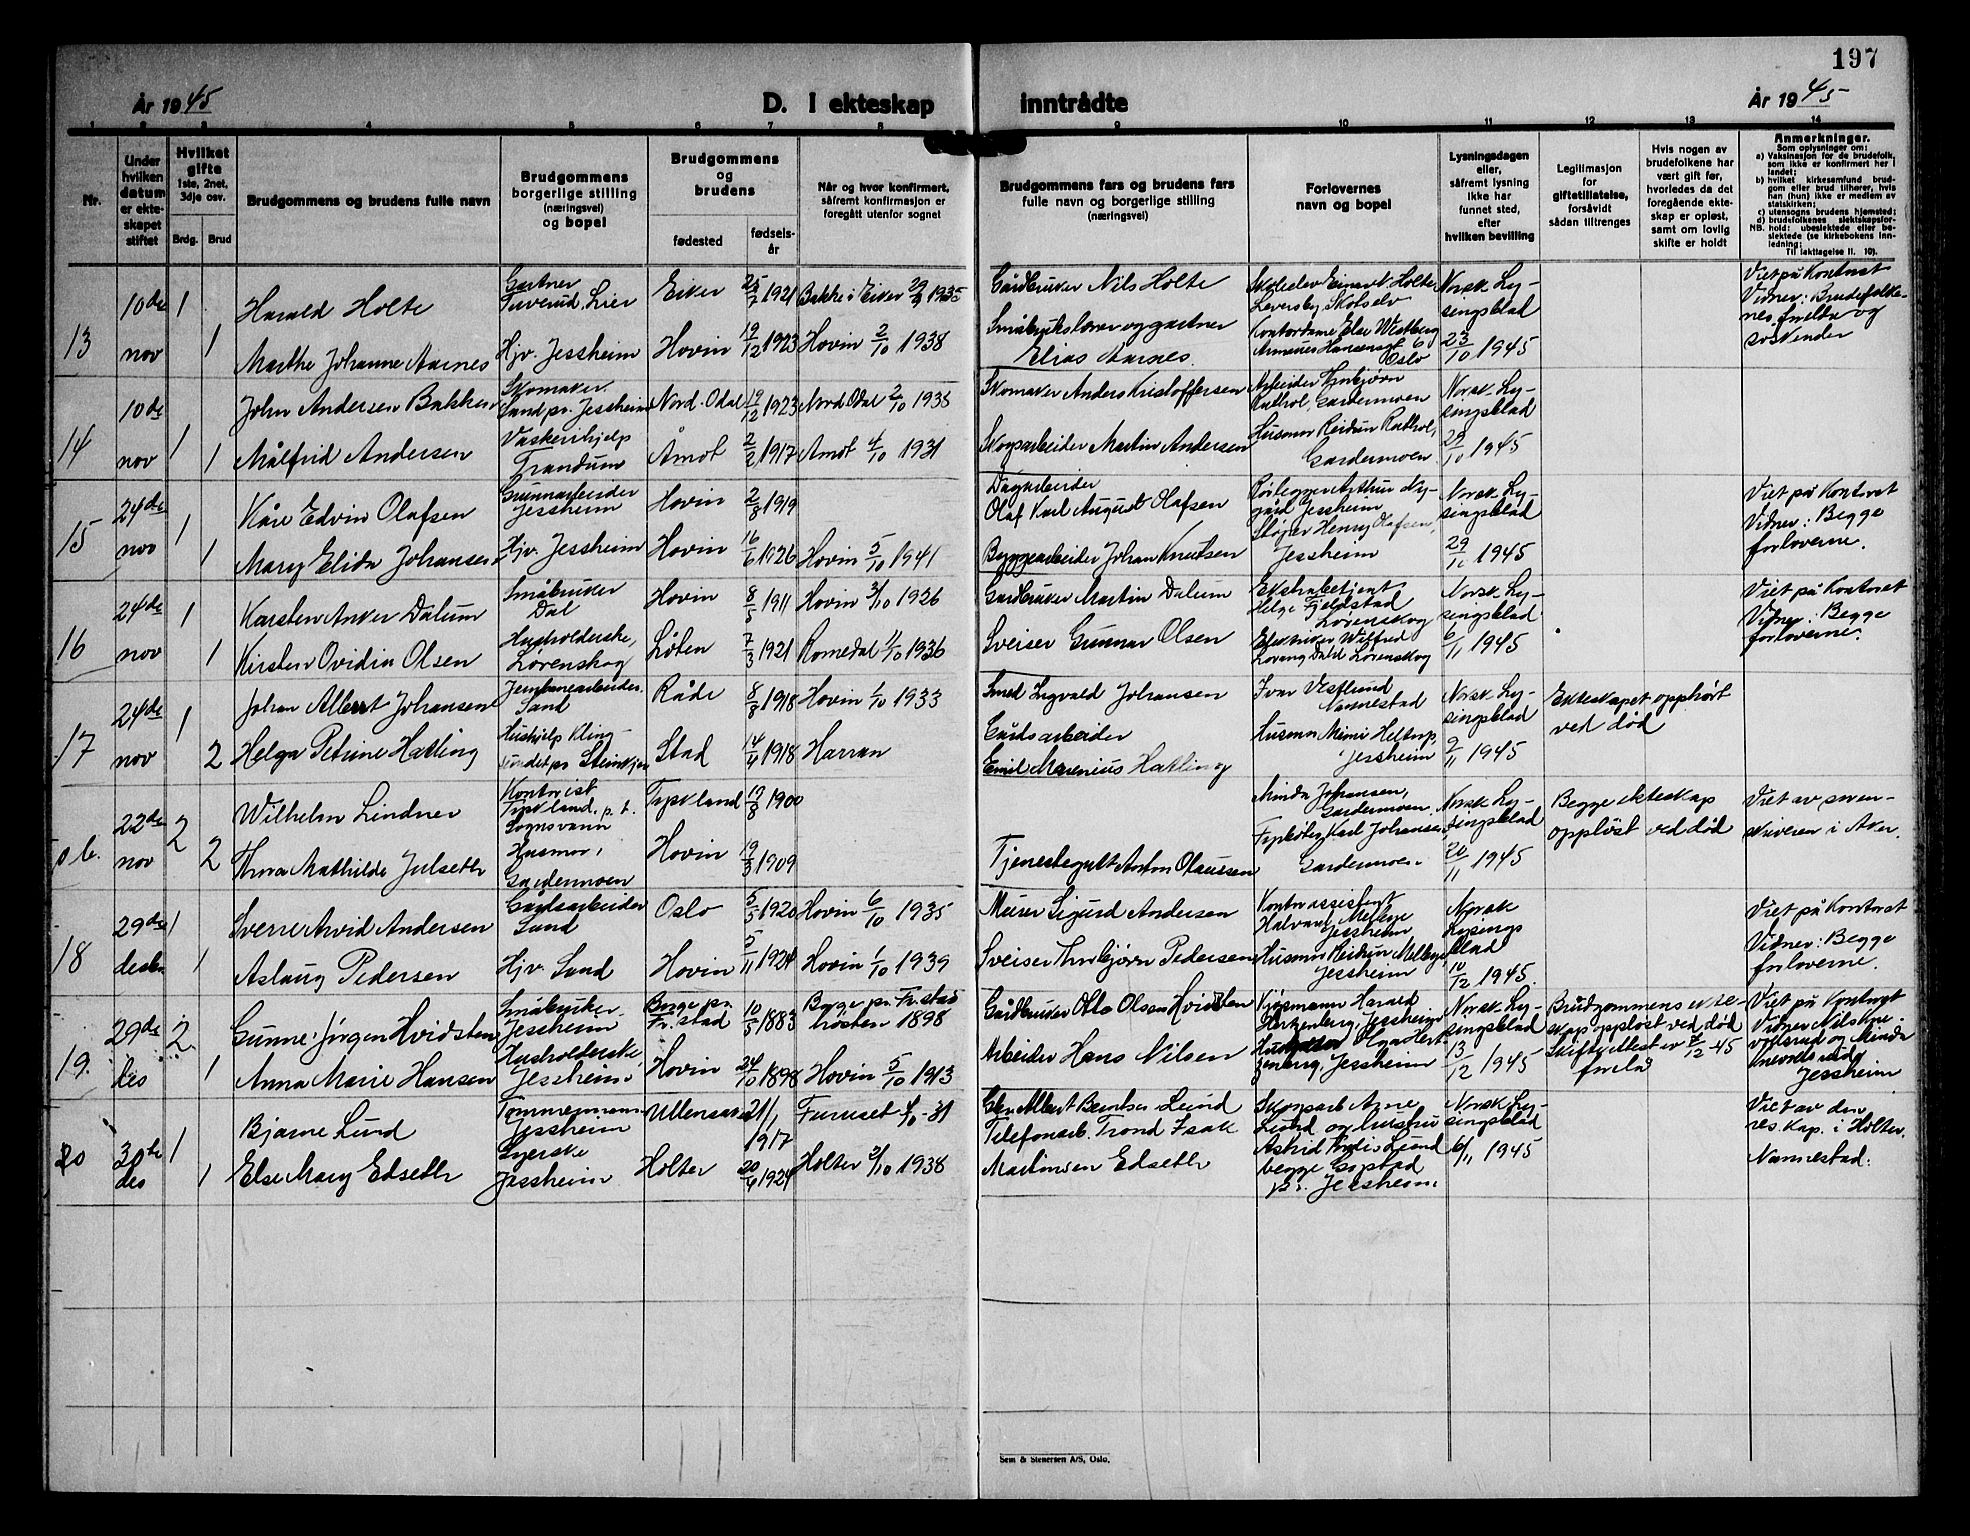 197
År 1945
D. I ekteskap inntrådte
År 1945
1 2 3 4 5 6 7 8 9 10 11 12 13 14
Nr.
Under hvilken datum er ekteskapet stiftet
Hvilket gifte
1ste, 2net, 3dje osv.
Brdg. Brud
Brudgommens og brudens fulle navn
Brudgommens borgerlige stilling (næringsvei) og bopel
Brudgommens og brudens
fødested
fødselsår
Når og hvor konfirmert, såfremt konfirmasjon er foregått utenfor sognet
Brudgommens fars og brudens fars fulle navn og borgerlige stilling (næringsvei)
Forlovernes navn og bopel
Lysningsdagen eller, såfremt lysning ikke har funnet sted, efter hvilken bevilling
Legitimasjon for giftetillatelse, forsåvidt sådan tiltrenges
Hvis nogen av brudefolkene har vært gift før, hvorledes da det foregående ekteskap er opløst, samt om lovlig skifte er holdt
Anmerkninger.
Som oplysninger om:
a) Vaksinasjon for de brudefolk, som ikke er konfirmert her i landet;
b) hvilket kirkesamfund brudgom eller brud tilhører, hvis han (hun) ikke er medlem av statskirken;
c) utensogns brudens hjemsted;
d) brudefolkenes slektskapsforhold: ubeslektede eller beslektede (se kirkebokens innledning;
NB.
Til iakttagelse II. 10).
13
10de nov
1
Harald Holte
Gartner
Lier
Eiker
1921
Bakke i Eiker 29/9 1935
Gårdbruker Nils Holte
Skoleelev Einart Holte
Norsk Lysingsblad
23/10 1945
Viet på Kontoret
Vidner: Brudefolkenes foreldre og søskender
1
Marthe Johanne Aarnes
Hjv. Jessheim
Hovin
19/12 1923
Hovin 2/10 1938
Småbrukslærer og gartner
Elias Aarnes.
Kontordame Else Westberg
Oslo
14
10de nov
1
John Andersen Bakken
Skomaker
Sand pr. Jessheim
Nord-Odal
19/12 1923
Nord Odal 2/10 1938
Skomaker Anders Kristoffersen
Arbeider
Gardermoen
Norsk Lysingsblad
29/10 1945
1
Målfrid Andersen
Vaskerihjelp
Trandum
Åmot
2/2 1917
Amot 4/10 1931
Skogsarbeider Martin Andersen
Husmor Reidun
Gardermoen
15
24de nov
1
Kåre Edvin Olafsen
Grunnarbeider
Jessheim
Hovin
2/8 1919
Dagarbeider
Olaf Karl August Olafsen
Rørlegger Arthur Nygård Jessheim
Norsk Lysingsblad
29/10 1945
Viet på Kontoret
Vidner: Begge forloverne.
1
Mary Elida Johansen
Hjv. Jessheim
Hovin
16/6 1926
Hovin 5/10 1941
Byggearbeider Johan Knutsen
Henry Olafsen,
Jessheim
16
24de nov
1
Karsten Anker Dalum
Småbruker
Dal
Hovin
8/5 1911
Hovin 3/10 1926
Gårdbruker Martin Dalum
Ekstrabetjent
Helge Fjeldstad
Lørenskog
Norsk Lysingsblad
6/11 1945
Viet på Kontoret
Vidner: Begge forloverne.
1
Kirsten Ovidia Olsen
Husholderske,
Lørenskog
Løten
7/3 1921
Romedal 1/10 1936
Sveiser Gunnar Olsen
Elektriker Wilfred
Lorang Dahl Lørenskog
17
24de nov
1
Johan Albert Johansen
Jernbanearbeider.
Sand
Råde
8/8 1918
Hovin 1/10 1933
Smed Sigvald Johansen
Ivar Vestlund
Nannestad
Norsk Lysingsblad
9/11 1945
Ekteskapet opphørt ved død
2
Helga Petrine Hatling
Hushjelp Klingsundet pr Steinkjer
Stod
14/4 1918
Harran
Gårdsarbeider
Emil Marenius Hatling
Husmor Mimi Heltorp,
Jessheim
22de nov
2
Wilhelm Lindner
Kontorist
Tyskland. p. t.
Sognsvann
Tyskland
19/8 1900
Minda Johansen,
Gardermoen
Norsk Lysingsblad
20/11 1945
Begge ekteskap oppløst ved død
Viet av sorenskriveren i Aker.
2
Thora Mathilde Julseth
Husmor,
Gardermoen
Hovin
19/3 1909
Tjenestegutt Anton Olaussen
Karl Johansen
Gardermoen
18
29de desbr
1
Sverre Arvid Andersen
Gårdsarbeider
Sand
Oslo
5/5 1920
Hovin 6/10 1935
Murer Sigurd Andersen
Kontorassistent
Halvard Melbye
Jessheim
Norsk Lysingsblad
10/12 1945.
Viet på Kontoret
Vidner: Begge forloverne.
1
Aslaug Pedersen
Hjv. Sand
Hovin
5/11 1924
Hovin 1/10 1939
Sveiser Thorbjørn Pedersen
Husmor Reidun Melbye
Jessheim
19.
29de des
2
Gunnar Jørgen Hvidsten
Småbruker
Jessheim
Borge pr. Fr.stad
10/5 1883
Borge pr. Fr.stad
høsten 1898
Gårdbruker Otto Olsen Hvidsten
Kjøpmann Harald
Hertzenberg, Jessheim
Norsk Lysingsblad
13/12 1945
Brudgommens ekteskap oppløst ved død
Skifteattest av 7/12-45
Viet på Kontoret
Jessheim
1
Anna Marie Hansen
Husholderske
Jessheim
Hovin
24/10 1898
Hovin 5/10 1913
Arbeider Hans Nilsen
Jessheim
20
30te des
1
Bjarne Lund
Tømmermann
Jessheim
Ullensaker
21/1 1917
Furuset 4/10-31
Albert Berntsen Lund
Arne Lund og hustru
Astrid Lund
begge
Jessheim.
Norsk Lysingsblad
6/11 1945
Viet av den res. kap. i Holter.
Nannestad.
1
Else Mary Edseth
Syerske
Jessheim
Holter
20/4 1924
Holter 2/10 1938
Telefonarb. Trond Isak
Martinsen Edseth
Sem & Stenersen A/S, Oslo.